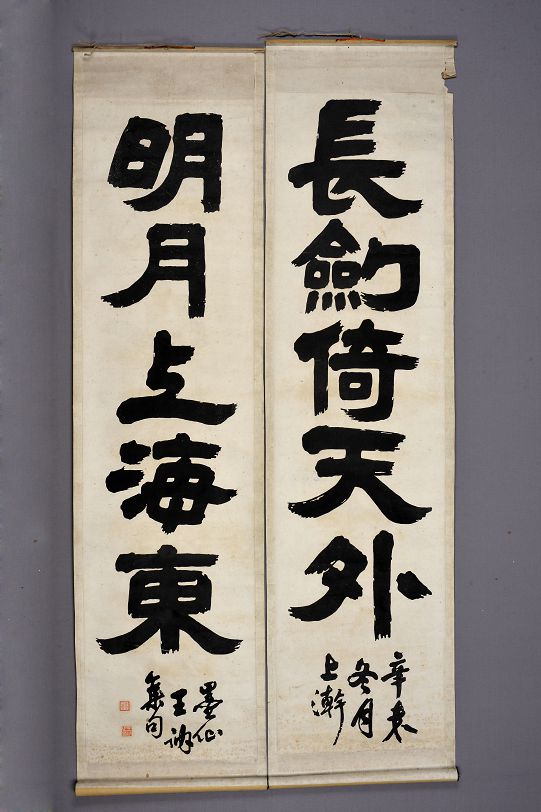 長劒倚天外
辛未
冬月
上澣
明月上海東
墨仙
王訥
集句